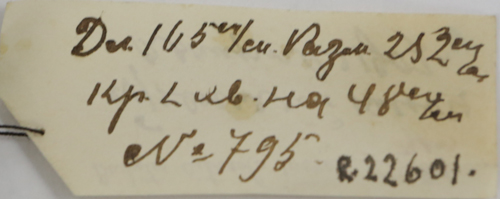 Дл. 165 см/см. Разм. 252 см/см
Кр. L хв. на 48 см/см
№ 795 R.22601.